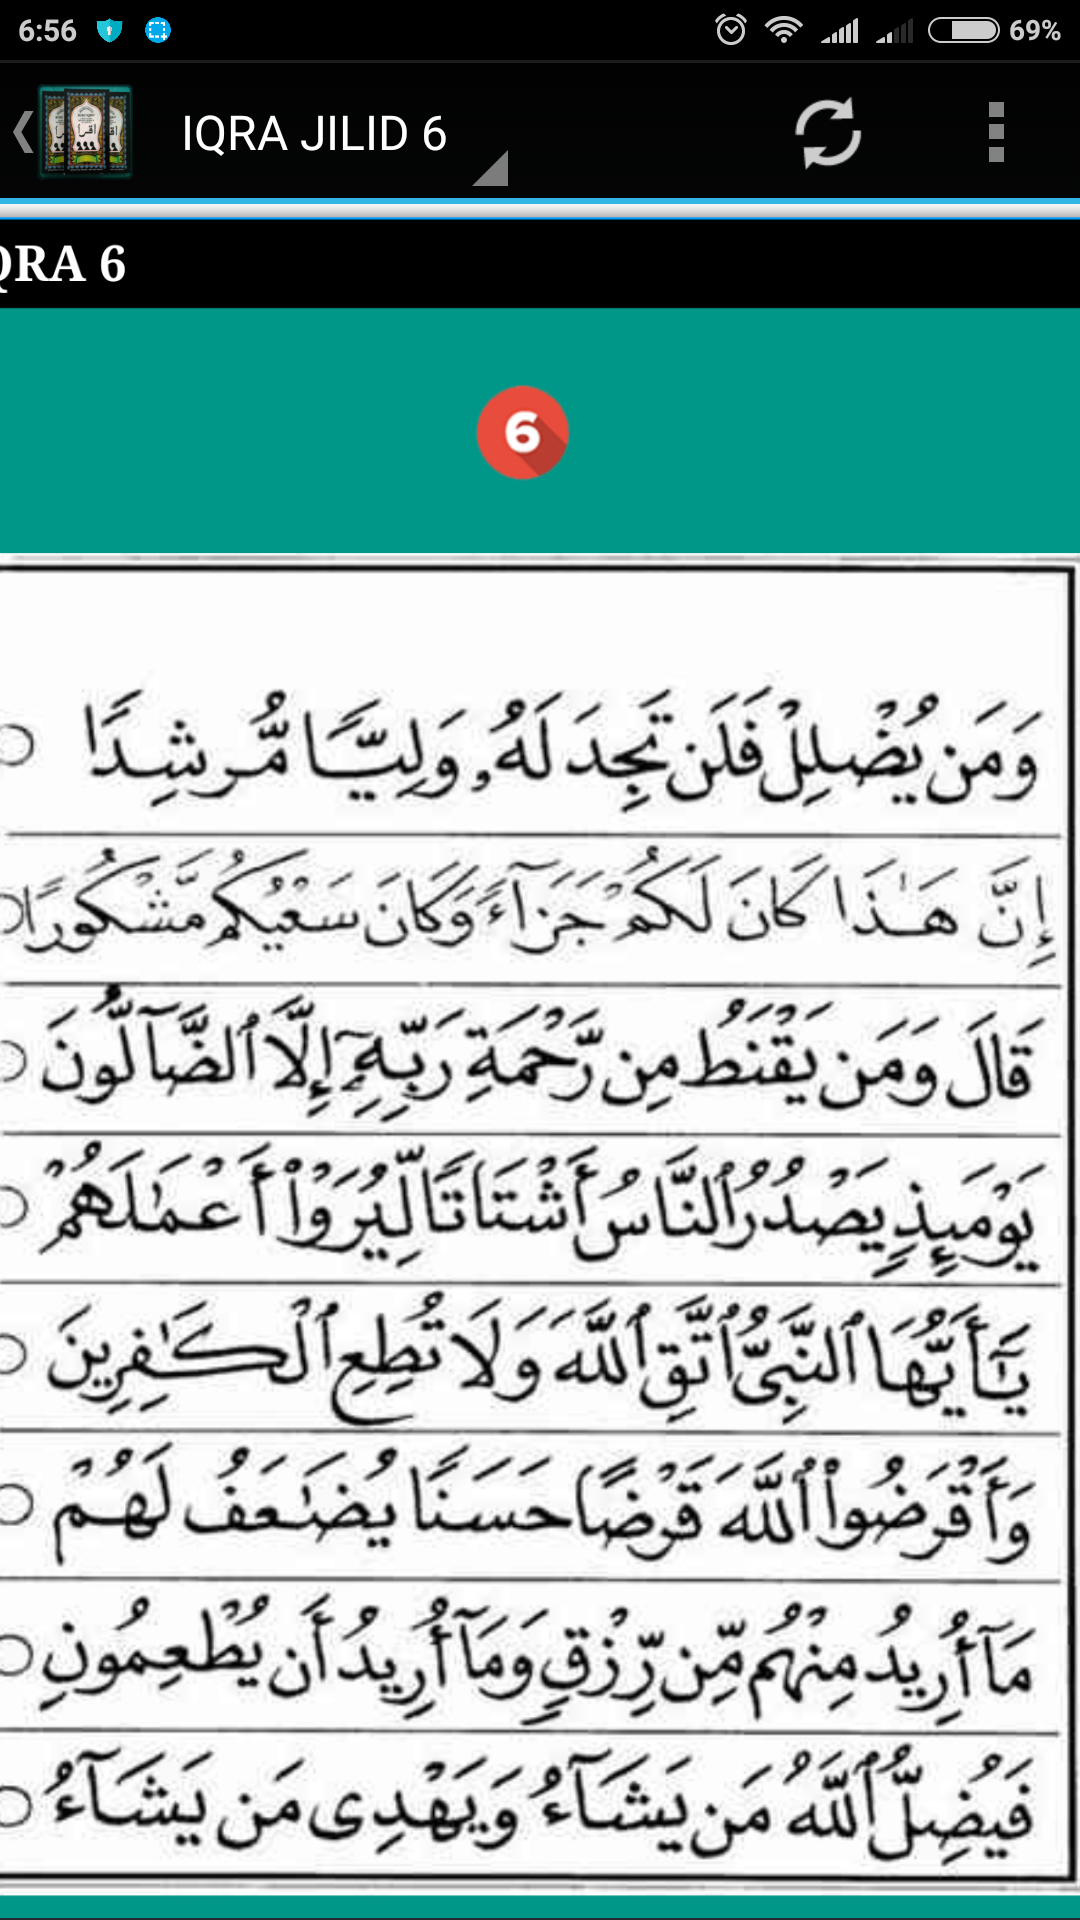 6:56
69%
IQRA JILID 6
QRA 6
6
وَمَن يُضْلِلْ فَلَن تَجِدَ لَهُۥ وَلِيًّا مُّرْشِدًا
إِنَّ هَـٰذَا كَانَ لَكُمْ جَزَآءً وَكَانَ سَعْيُكُم مَّشْكُورًا
قَالَ وَمَن يَقْنَطُ مِن رَّحْمَةِ رَبِّهِۦٓ إِلَّا ٱلضَّآلُّونَ
يَوْمَئِذٍ يَصْدُرُ ٱلنَّاسُ أَشْتَاتًا لِّيُرَوْا۟ أَعْمَـٰلَهُمْ
يَـٰٓأَيُّهَا ٱلنَّبِىُّ ٱتَّقِ ٱللَّهَ وَلَا تُطِعِ ٱلْكَـٰفِرِينَ
وَأَقْرَضُوا۟ ٱللَّهَ قَرْضًا حَسَنًا يُضَـٰعَفُ لَهُمْ
مَآ أُرِيدُ مِنْهُم مِّن رِّزْقٍ وَمَآ أُرِيدُ أَن يُطْعِمُونِ
فَيُضِلُّ ٱللَّهُ مَن يَشَآءُ وَيَهْدِى مَن يَشَآءُ